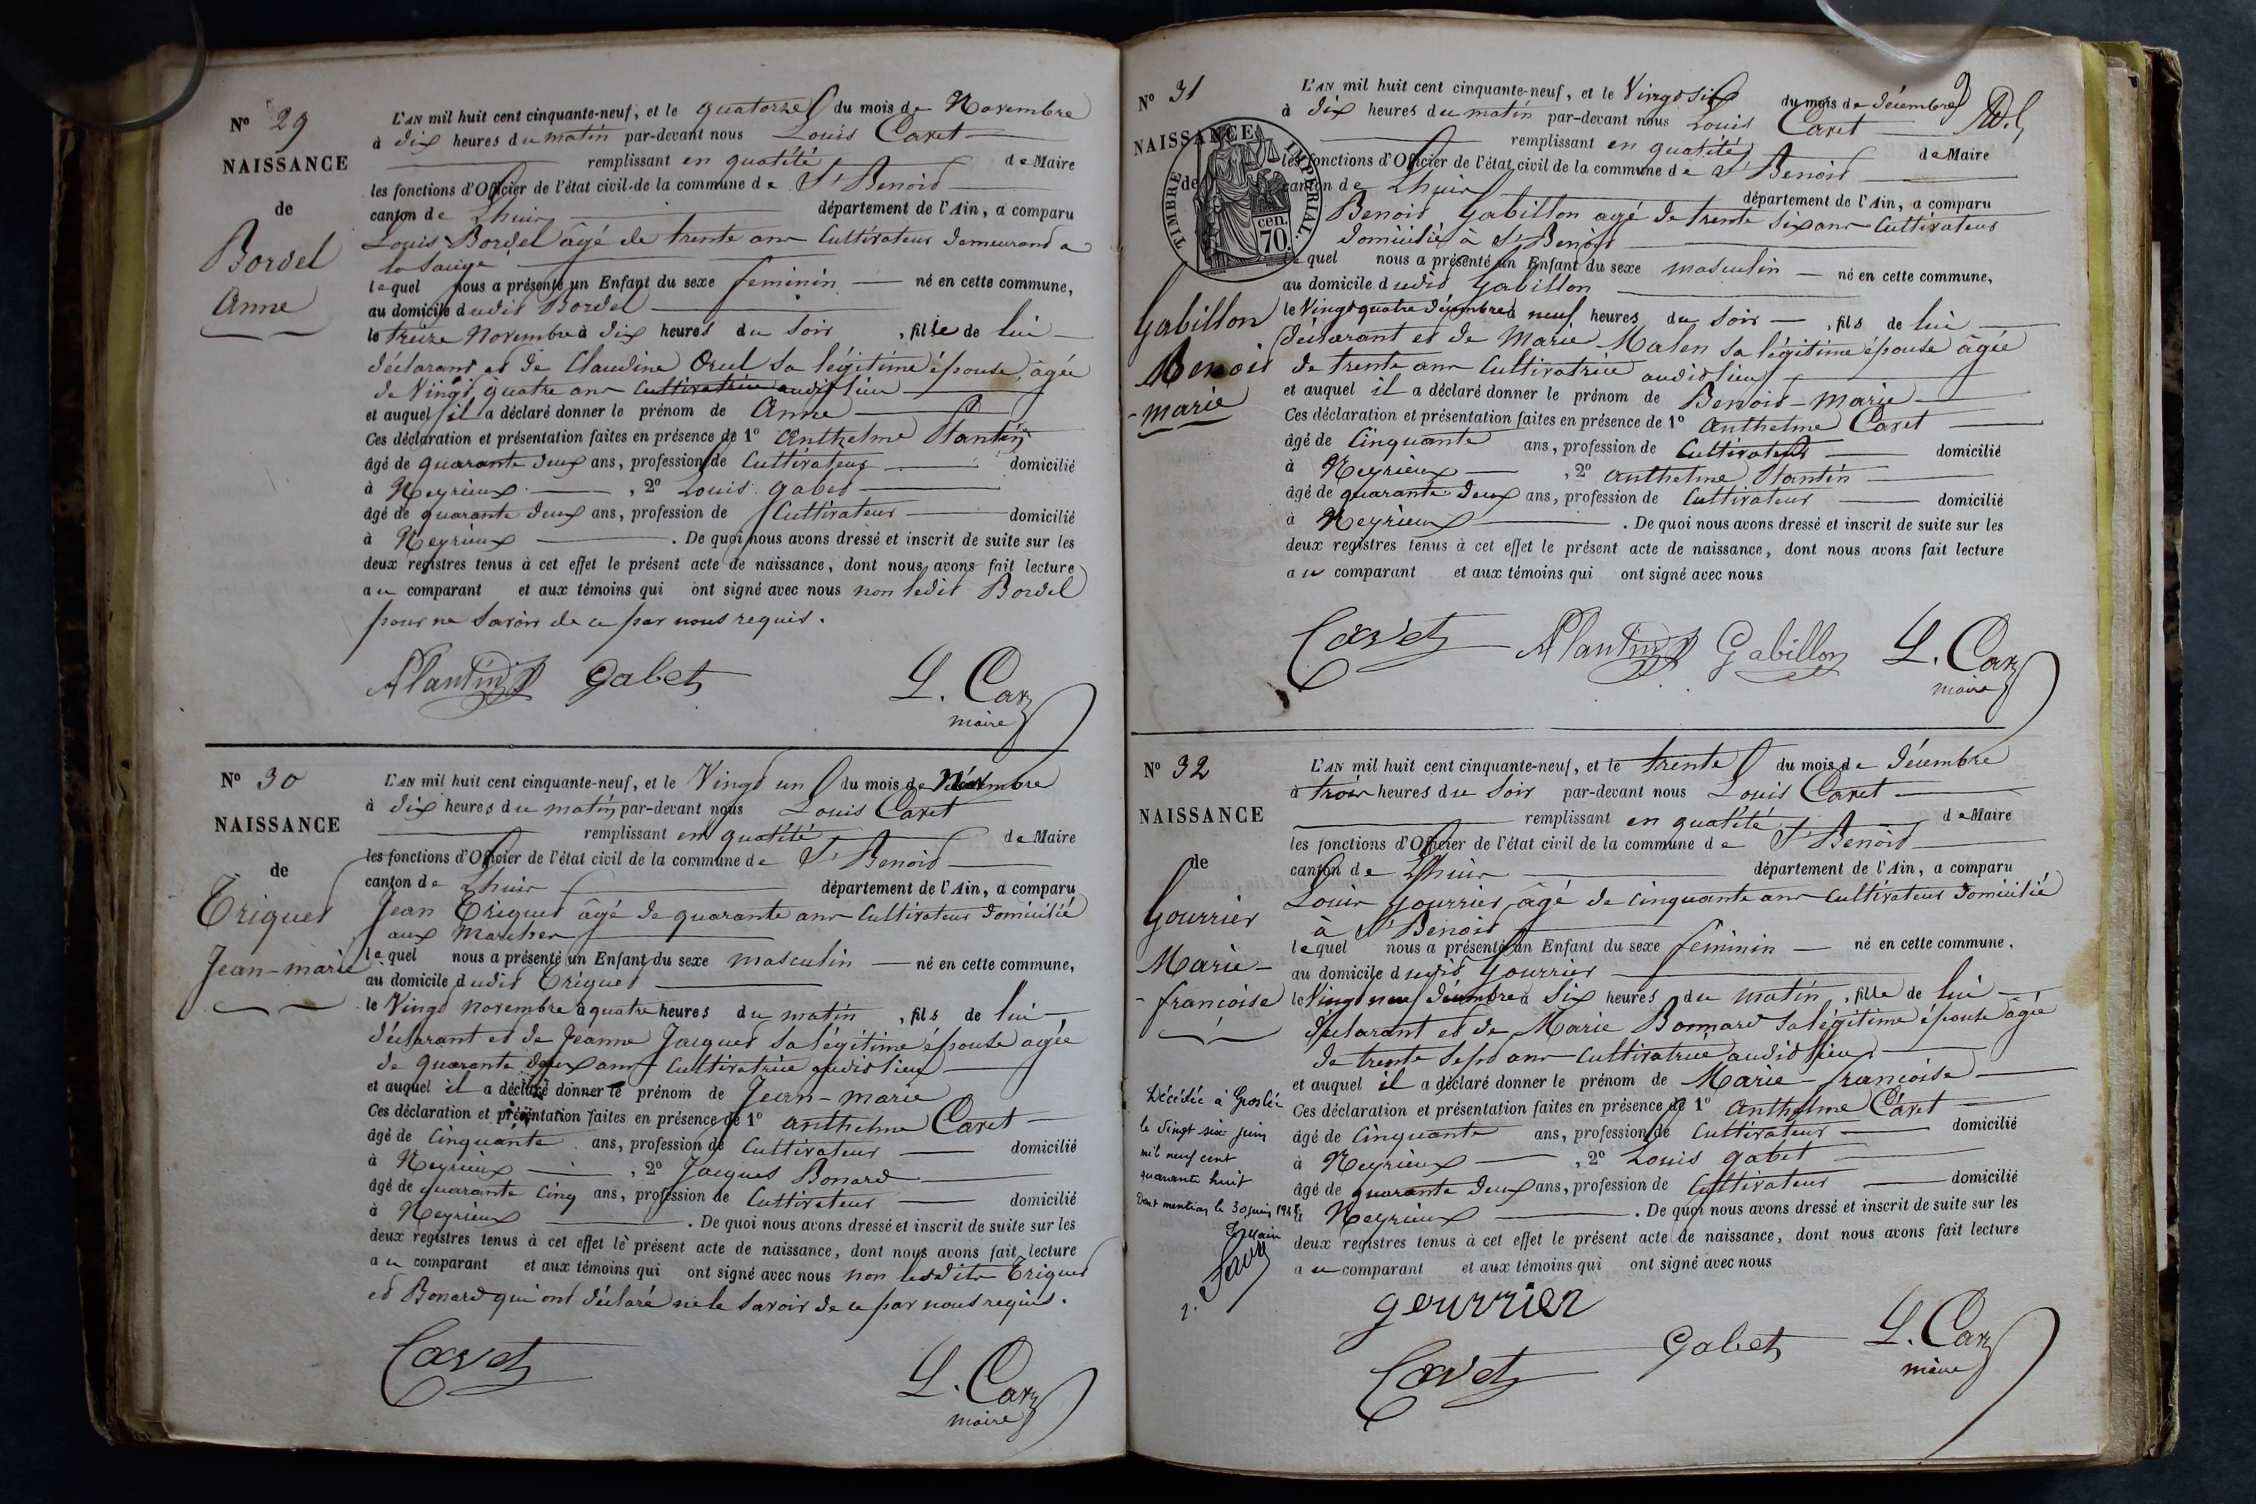 N° 29
NAISSANCE
de
Bordel
Anne
L'AN mil huit cent cinquante-neuf, et le quatorze du mois de Novembre
à dix heures du matin par-devant nous Louis Cavet
remplissant en qualité de Maire
les fonctions d'Officier de l'état civil de la commune de St Benoid
canton de Lhuis département de l'Ain, a comparu
Louis Bordel âgé de trente ans Cultivateur demeurand a
la Sauge
lequel nous a présenté un Enfant du sexe feminin né en cette commune,
au domicile dudid Bordel
le treize Novembre à dix heures du soir, fille de lui
déclarant et de Claudine Orcel sa légitime épouse, âgée
de Vingd quatre ans Cultivatrice audid lieu
et auquel il a déclaré donner le prénom de Anne
Ces déclaration et présentation faites en présence de 1° Anthelme Plantin
âgé de quarante deux ans, profession de Cultivateur domicilié
à Neyrieux, 2° Louis gabet
âgé de quarante deux ans, profession de Cultivateur domicilié
à Neyrieux. De quoi nous avons dressé et inscrit de suite sur les
deux registres tenus à cet effet le présent acte de naissance, dont nous avons fait lecture
au comparant et aux témoins qui ont signé avec nous non ledit Bordel
pour ne savoir de ce par nous requis.
APlantin gabet L. Cavet
maire
N° 30
NAISSANCE
de
Triqued
Jean-marie
L'AN mil huit cent cinquante-neuf, et le Vingd un du mois de Novembre
à dix heures du matin par-devant nous Louis Cavet
remplissant en qualité de Maire
les fonctions d'Officier de l'état civil de la commune de St Benoid
canton de Lhuis département de l'Ain, a comparu
Jean Triqued âgé de quarante ans Cultivateur domicilié
aux
lequel nous a présenté un Enfant du sexe masculin né en cette commune,
au domicile dudid Triqued
le Vingd novembre à quatre heures du matin, fils de lui
déclarant et de Jeanne Jacqued sa légitime épouse agée
de quarante deux ans Cultivatrice audid lieu
et auquel il a déclaré donner le prénom de Jean-marie
Ces déclaration et présentation faites en présence de 1° anthelme Cavet
âgé de Cinquante ans, profession de Cultivateur domicilié
à Neyrieux, 2° Jacques Bonard
âgé de quarante cinq ans, profession de Cultivateur domicilié
à Neyrieux. De quoi nous avons dressé et inscrit de suite sur les
deux registres tenus à cet effet le présent acte de naissance, dont nous avons fait lecture
au comparant et aux témoins qui ont signé avec nous non lesdits Triqued
ed Bonard qui ont déclaré ne le savoir de ce par nous requis.
Cavet L. Cavet
maire
N° 31
NAISSANCE
de
TIMBRE IMPÉRIAL.
70 cen.
Gabillon
Benoid
-marie
L'AN mil huit cent cinquante-neuf, et le Vingd six du mois de décembre
à dix heures du matin par-devant nous Louis Cavet
remplissant en qualité de Maire
les fonctions d'Officier de l'état civil de la commune de St Benoid
canton de Lhuis département de l'Ain, a comparu
Benoid Gabillon agé de trente six ans Cultivateur
domicilié à St Benoid
lequel nous a présenté un Enfant du sexe masculin né en cette commune,
au domicile dudid Gabillon
le Vingd quatre décembre à neuf heures du soir, fils de lui
déclarant et de Marie Malen sa légitime épouse âgée
de trente ans Cultivatrice audid lieu
et auquel il a déclaré donner le prénom de Benoid-marie
Ces déclaration et présentation faites en présence de 1° anthelme Cavet
âgé de Cinquante ans, profession de Cultivateur domicilié
à Neyrieux, 2° anthelme Plantin
âgé de quarante deux ans, profession de Cultivateur domicilié
à Neyrieux. De quoi nous avons dressé et inscrit de suite sur les
deux registres tenus à cet effet le présent acte de naissance, dont nous avons fait lecture
au comparant et aux témoins qui ont signé avec nous
Cavet APlantin Gabillon L. Cavet
maire
N° 32
NAISSANCE
de
Gourrier
Marie-
-francoise
Décédée a Groslée
le vingt six juin
mil neuf cent
quarante huit
Dont mention le 30 juin 1948
L'AN mil huit cent cinquante-neuf, et le trente du mois de décembre
à trois heures du soir par-devant nous Louis Cavet
remplissant en qualité de Maire
les fonctions d'Officier de l'état civil de la commune de St Benoid
canton de Lhuis département de l'Ain, a comparu
Louis Gourrier âgé de cinquante ans cultivateur domicilié
à St Benoid
lequel nous a présenté un Enfant du sexe féminin né en cette commune,
au domicile dudid Gourrier
le Vingd neuf décembre à six heures du matin, fille de lui
déclarant et de Marie Bonnard sa légitime épouse âgée
de trente sept ans cultivatrice audid lieu
et auquel il a déclaré donner le prénom de Marie-francoise
Ces déclaration et présentation faites en présence de 1° anthelme Cavet
âgé de Cinquante ans, profession de Cultivateur domicilié
à Neyrieux, 2° Louis gabet
âgé de quarante deux ans, profession de Cultivateur domicilié
à Neyrieux. De quoi nous avons dressé et inscrit de suite sur les
deux registres tenus à cet effet le présent acte de naissance, dont nous avons fait lecture
au comparant et aux témoins qui ont signé avec nous
gourrier
Cavet gabet L. Cavet
maire